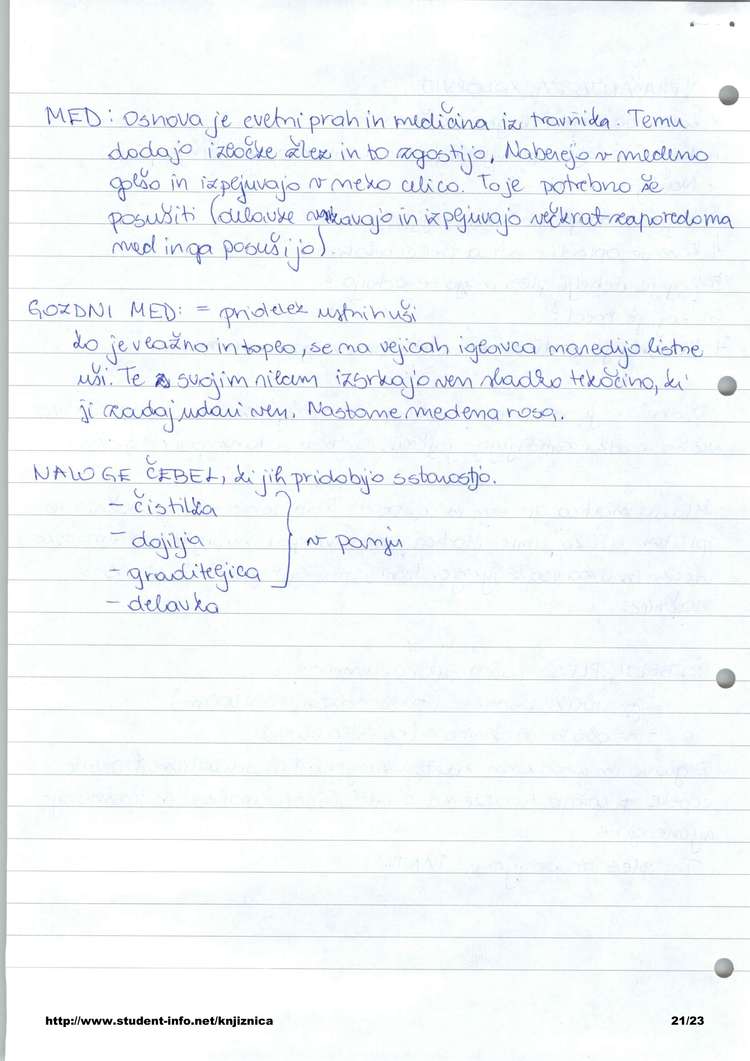 MED: Osnova je cvetni prah in medičina iz travnika. Temu
dodajo izločke žlez in to zgostijo, Naberejo v medeno
golšo in izpljuvajo v neko celico. To je potrebno še
posušiti (delavke srkavajo in izpljuvajo večkrat zaporedoma
med in ga posušijo).
GOZDNI MED: = pridelek ustnih uši
Ko je vlažno in toplo, se na vejicah iglavca naredijo listne
uši. Te s svojim rilcem izsrkajo ven sladko tekočino, ki
ji zadaj udari ven. Nastane medena rosa.
NALOGE ČEBEL, ki jih pridobijo s starostjo.
- čistilka
- dojilja
v panju
- graditeljica
- delavka
http://www.student-info.net/knjiznica
21/23